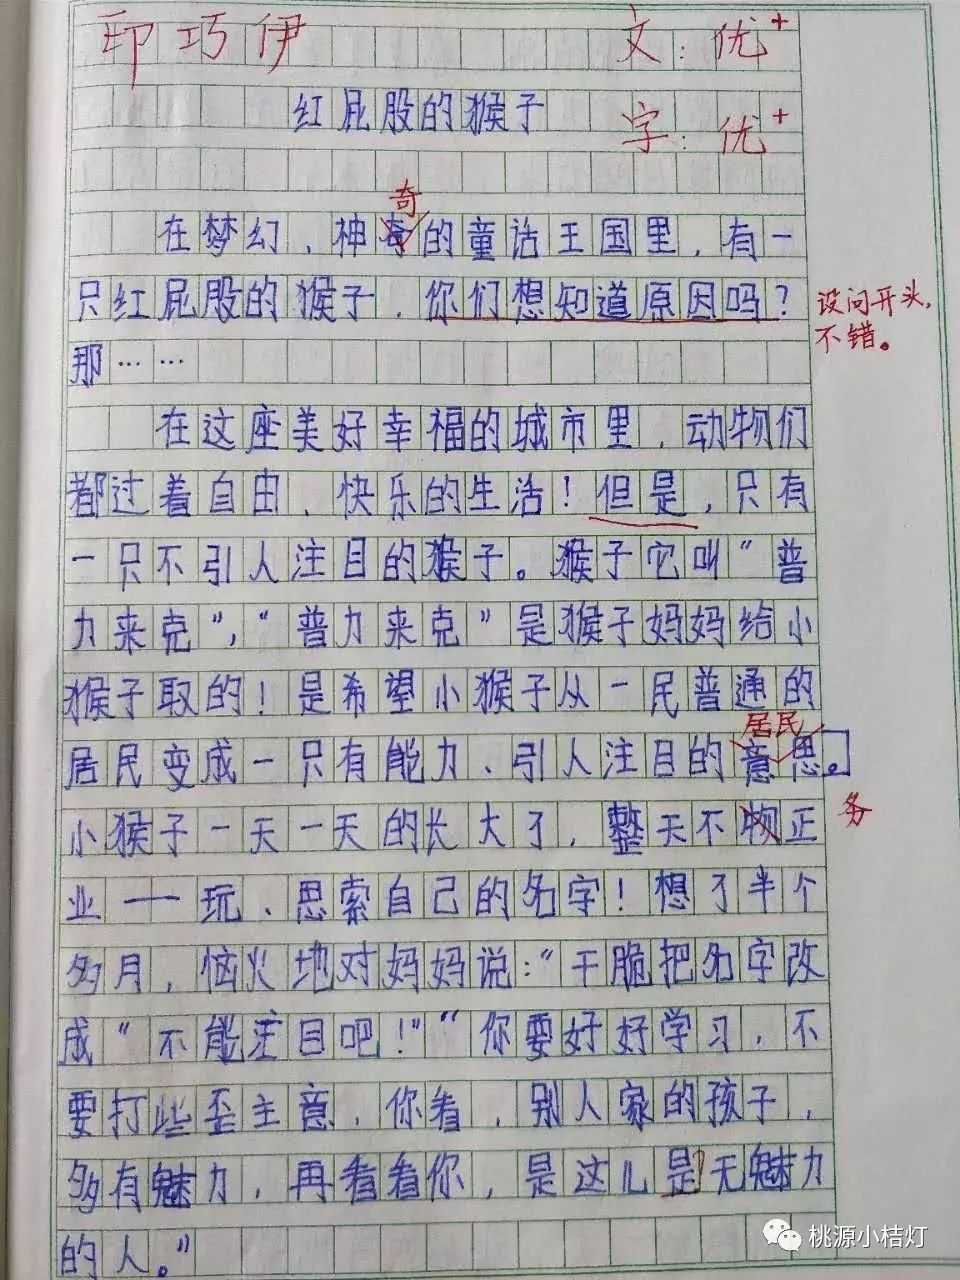 印巧伊
文:优+
红屁股的猴子
字:优+
奇
在梦幻、神奇的童话王国里,有一
只红屁股的猴子,你们想知道原因吗?
设问开头,
不错。
那……
在这座美好幸福的城市里,动物们
都过着自由、快乐的生活!但是,只有
一只不引人注目的猴子。猴子它叫“普
力来克”,“普力来克”是猴子妈妈给小
猴子取的!是希望小猴子从一民普通的
居民
居民变成一只有能力、引人注目的意思。
务
小猴子一天一天的长大了,整天不物正
业——玩、思索自己的名字!想了半个
多月,恼火地对妈妈说:“干脆把名字改
成“不能注目吧!”“你要好好学习,不
要打些歪主意,你看,别人家的孩子,
多有魅力,再看看你,是这儿是无魅力
的人。”
桃源小桔灯